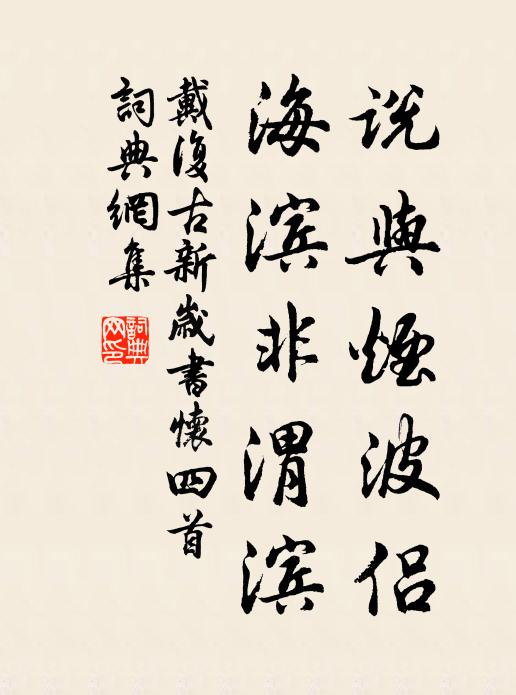 说与煙波侣
海滨非渭滨
戴復古新歲書懷四首
詞典網集
詞典网印